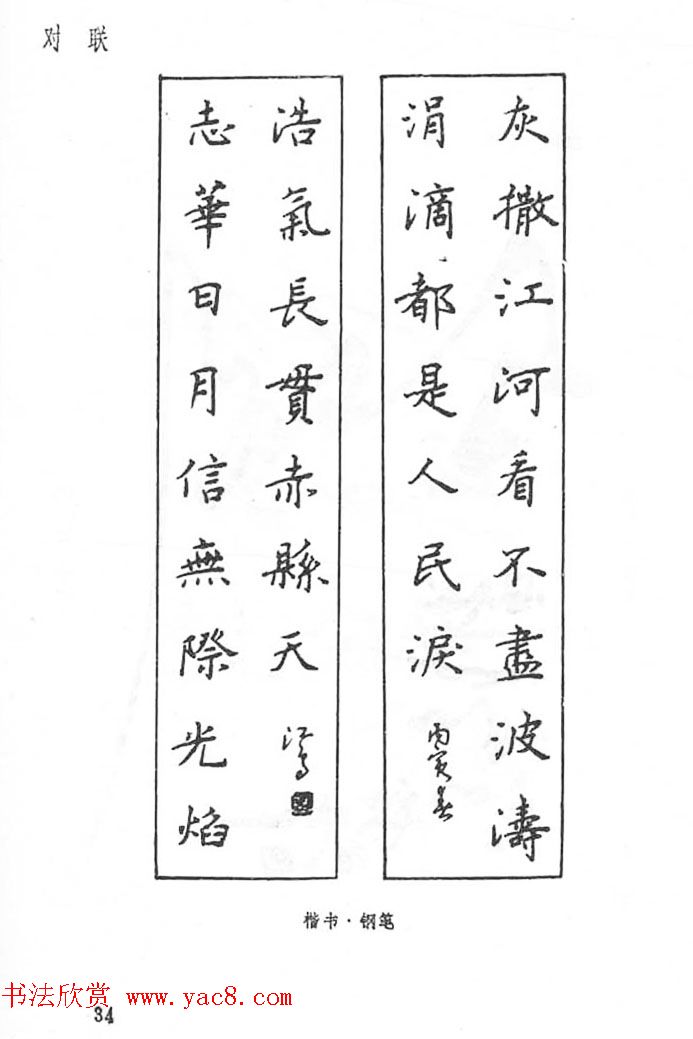 对 联
灰撒江河看不盡波濤
涓滴都是人民淚
丙寅春
志華日月信無際光焰
浩氣長貫赤縣天
楷书·钢笔
书法欣赏 www.yac8.com
34